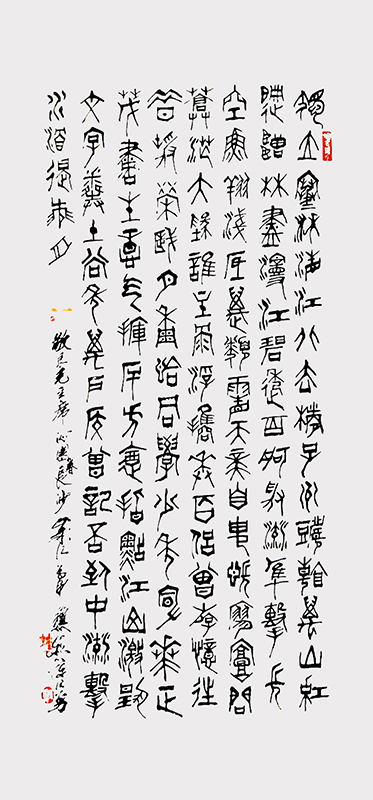 獨立寒秋湘江北去橘子洲頭看萬山紅
遍層林盡漫江碧透百舸爭流擊長
空魚翔淺底萬類霜天競自由悵寥廓問
蒼茫大地誰主浮攜來百侶曾游憶往
昔崢嶸歲月稠恰同學少年風華正
茂書生意氣揮斥方遒指點江山激揚
文字糞土谷年萬戶侯曾記否到中流擊
水浪遏飛舟
毛主席沁園春長沙